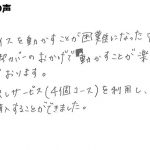 の声
イスを動かすことが困難になった
カバーのおかげで動かすことが楽
おります。
しサービス(4個コース)を利用し、
入することができました。